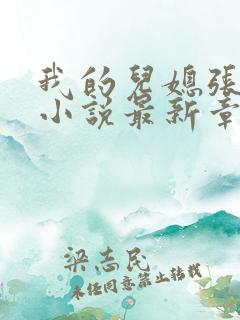 我的兒媳張
小說最新章
梁志民
未經同意禁止轉載